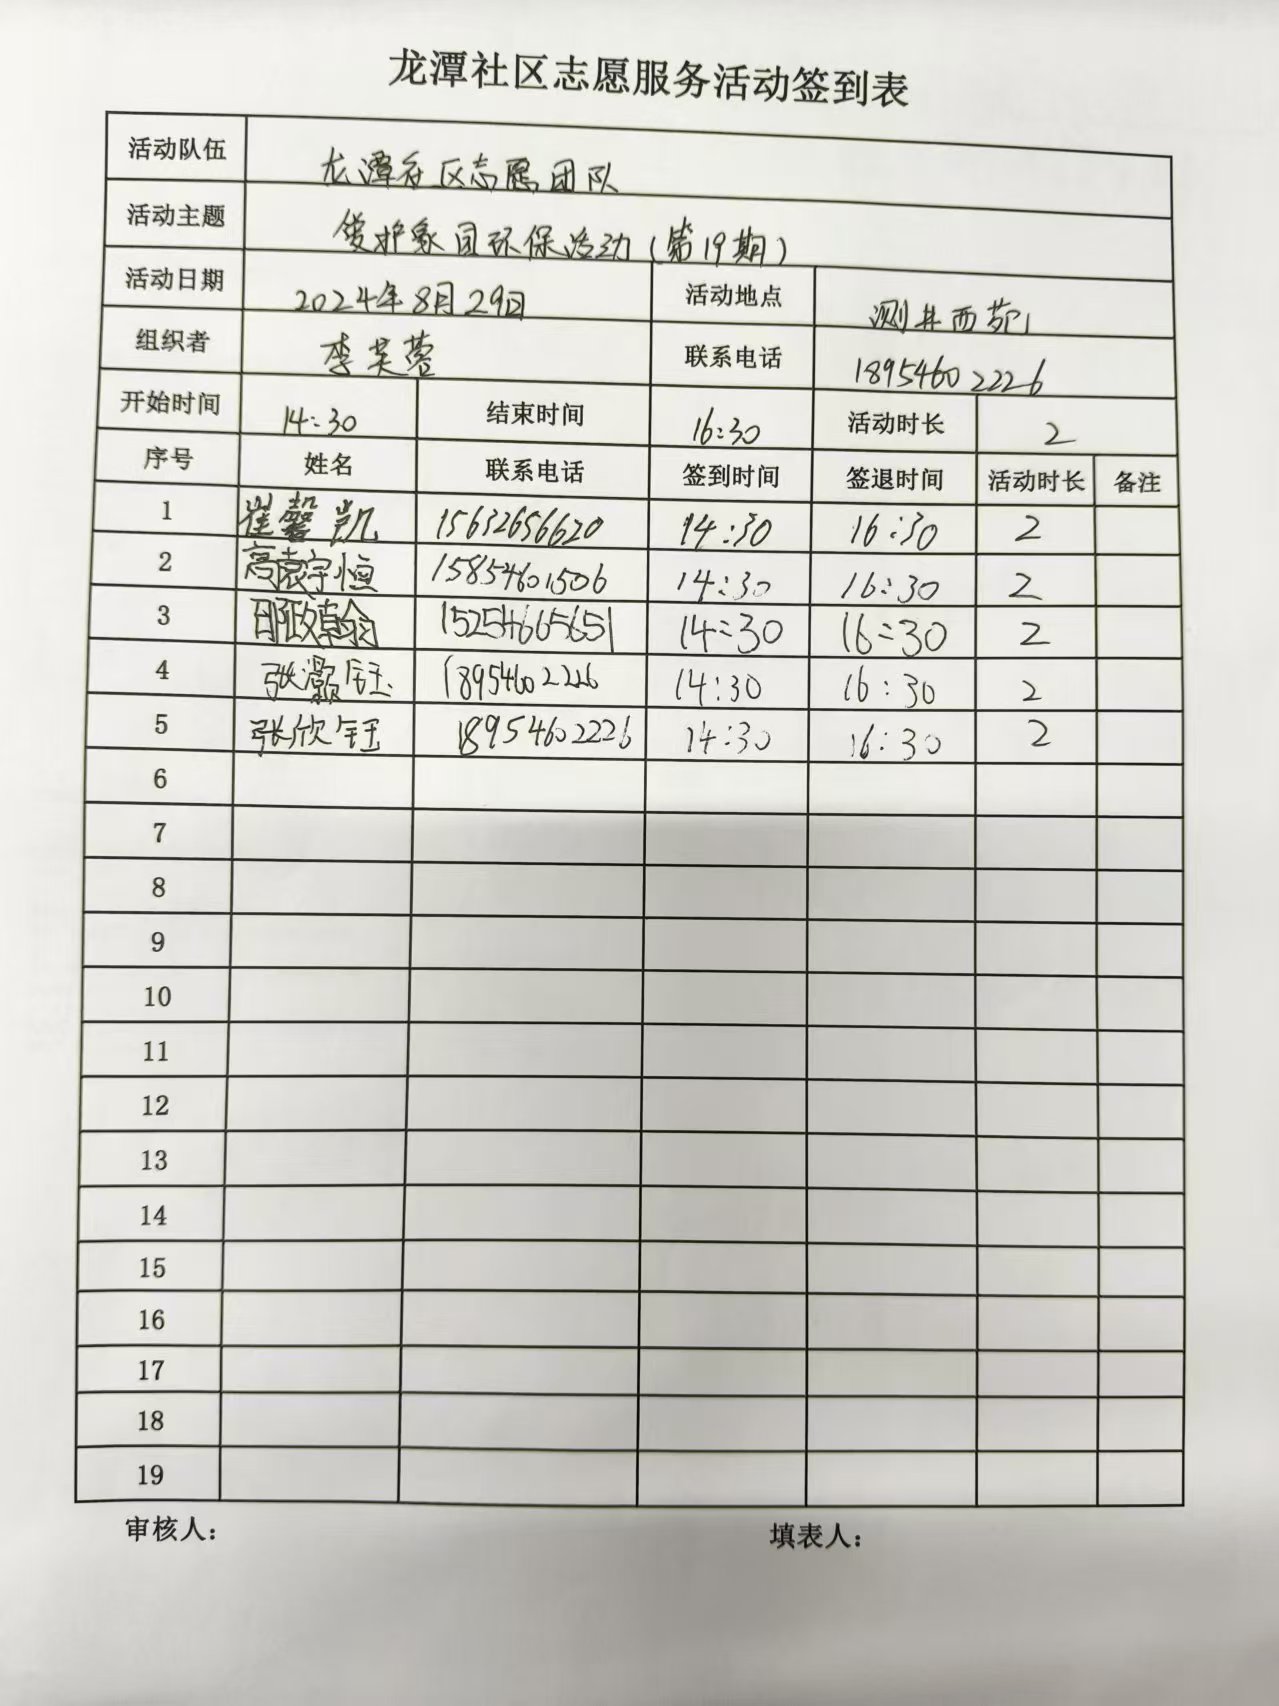 龙潭社区志愿服务活动签到表
活动队伍 龙潭社区志愿团队
活动主题 爱护家园环保活动(第19期)
活动日期 2024年8月29日 活动地点 测井西苑
组织者 李芙蓉 联系电话 18954602226
开始时间 14:30 结束时间 16:30 活动时长 2
序号 姓名 联系电话 签到时间 签退时间 活动时长 备注
1 崔馨凯 15632656620 14:30 16:30 2
2 高袁宇恒 15854601506 14:30 16:30 2
3 15254665651 14:30 16:30 2
4 张灏钰 18954602226 14:30 16:30 2
5 张欣钰 18954602226 14:30 16:30 2
6
7
8
9
10
11
12
13
14
15
16
17
18
19
审核人: 填表人: